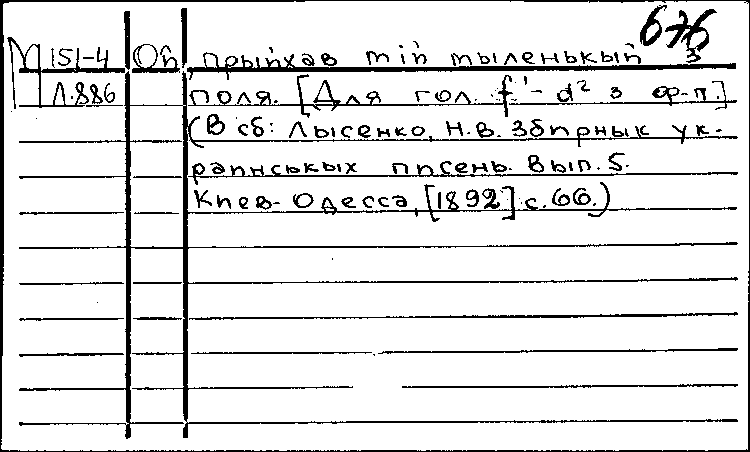 676
М 151-4 Ой, прыйхав мій мыленькый з
Л.886 поля. [Для гол. f¹ - d² з ф-п.]
(В сб: Лысенко, Н.В. Збирнык ук-
раинськых писень. Вып. 5.
Киев-Одесса, [1892] с. 66.)